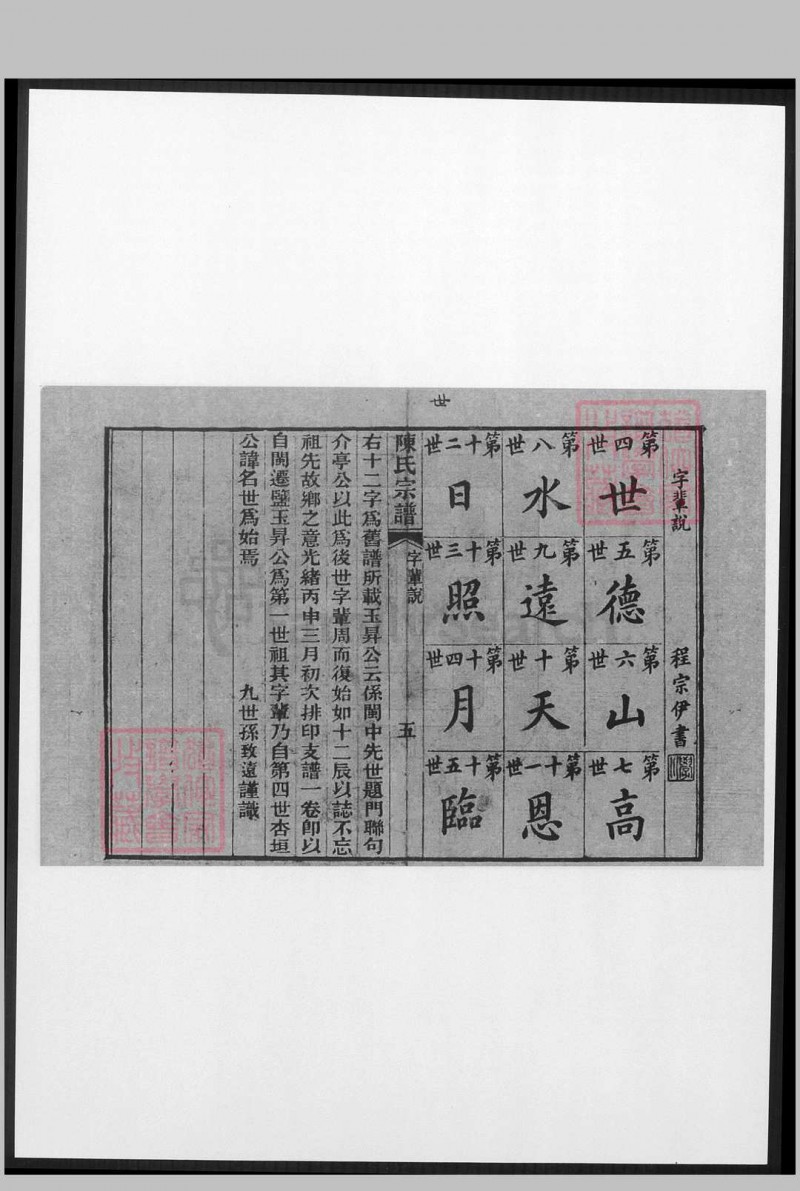 世
字輩說 程宗伊書
第四世 世
第五世 德
第六世 山
第七世 高
第八世 水
第九世 遠
第十世 天
第十一世 恩
第十二世 日
第十三世 照
第十四世 月
第十五世 臨
陳氏宗譜 字輩說 五
右十二字爲舊譜所載玉昇公云係閩中先世題門聯句
介亭公以此爲後世字輩周而復始如十二辰以誌不忘
祖先故鄉之意光緒丙申三月初次排印支譜一卷卽以
自閩遷鹽玉昇公爲第一世祖其字輩乃自第四世杏垣
公諱名世爲始焉 九世孫致遠謹識